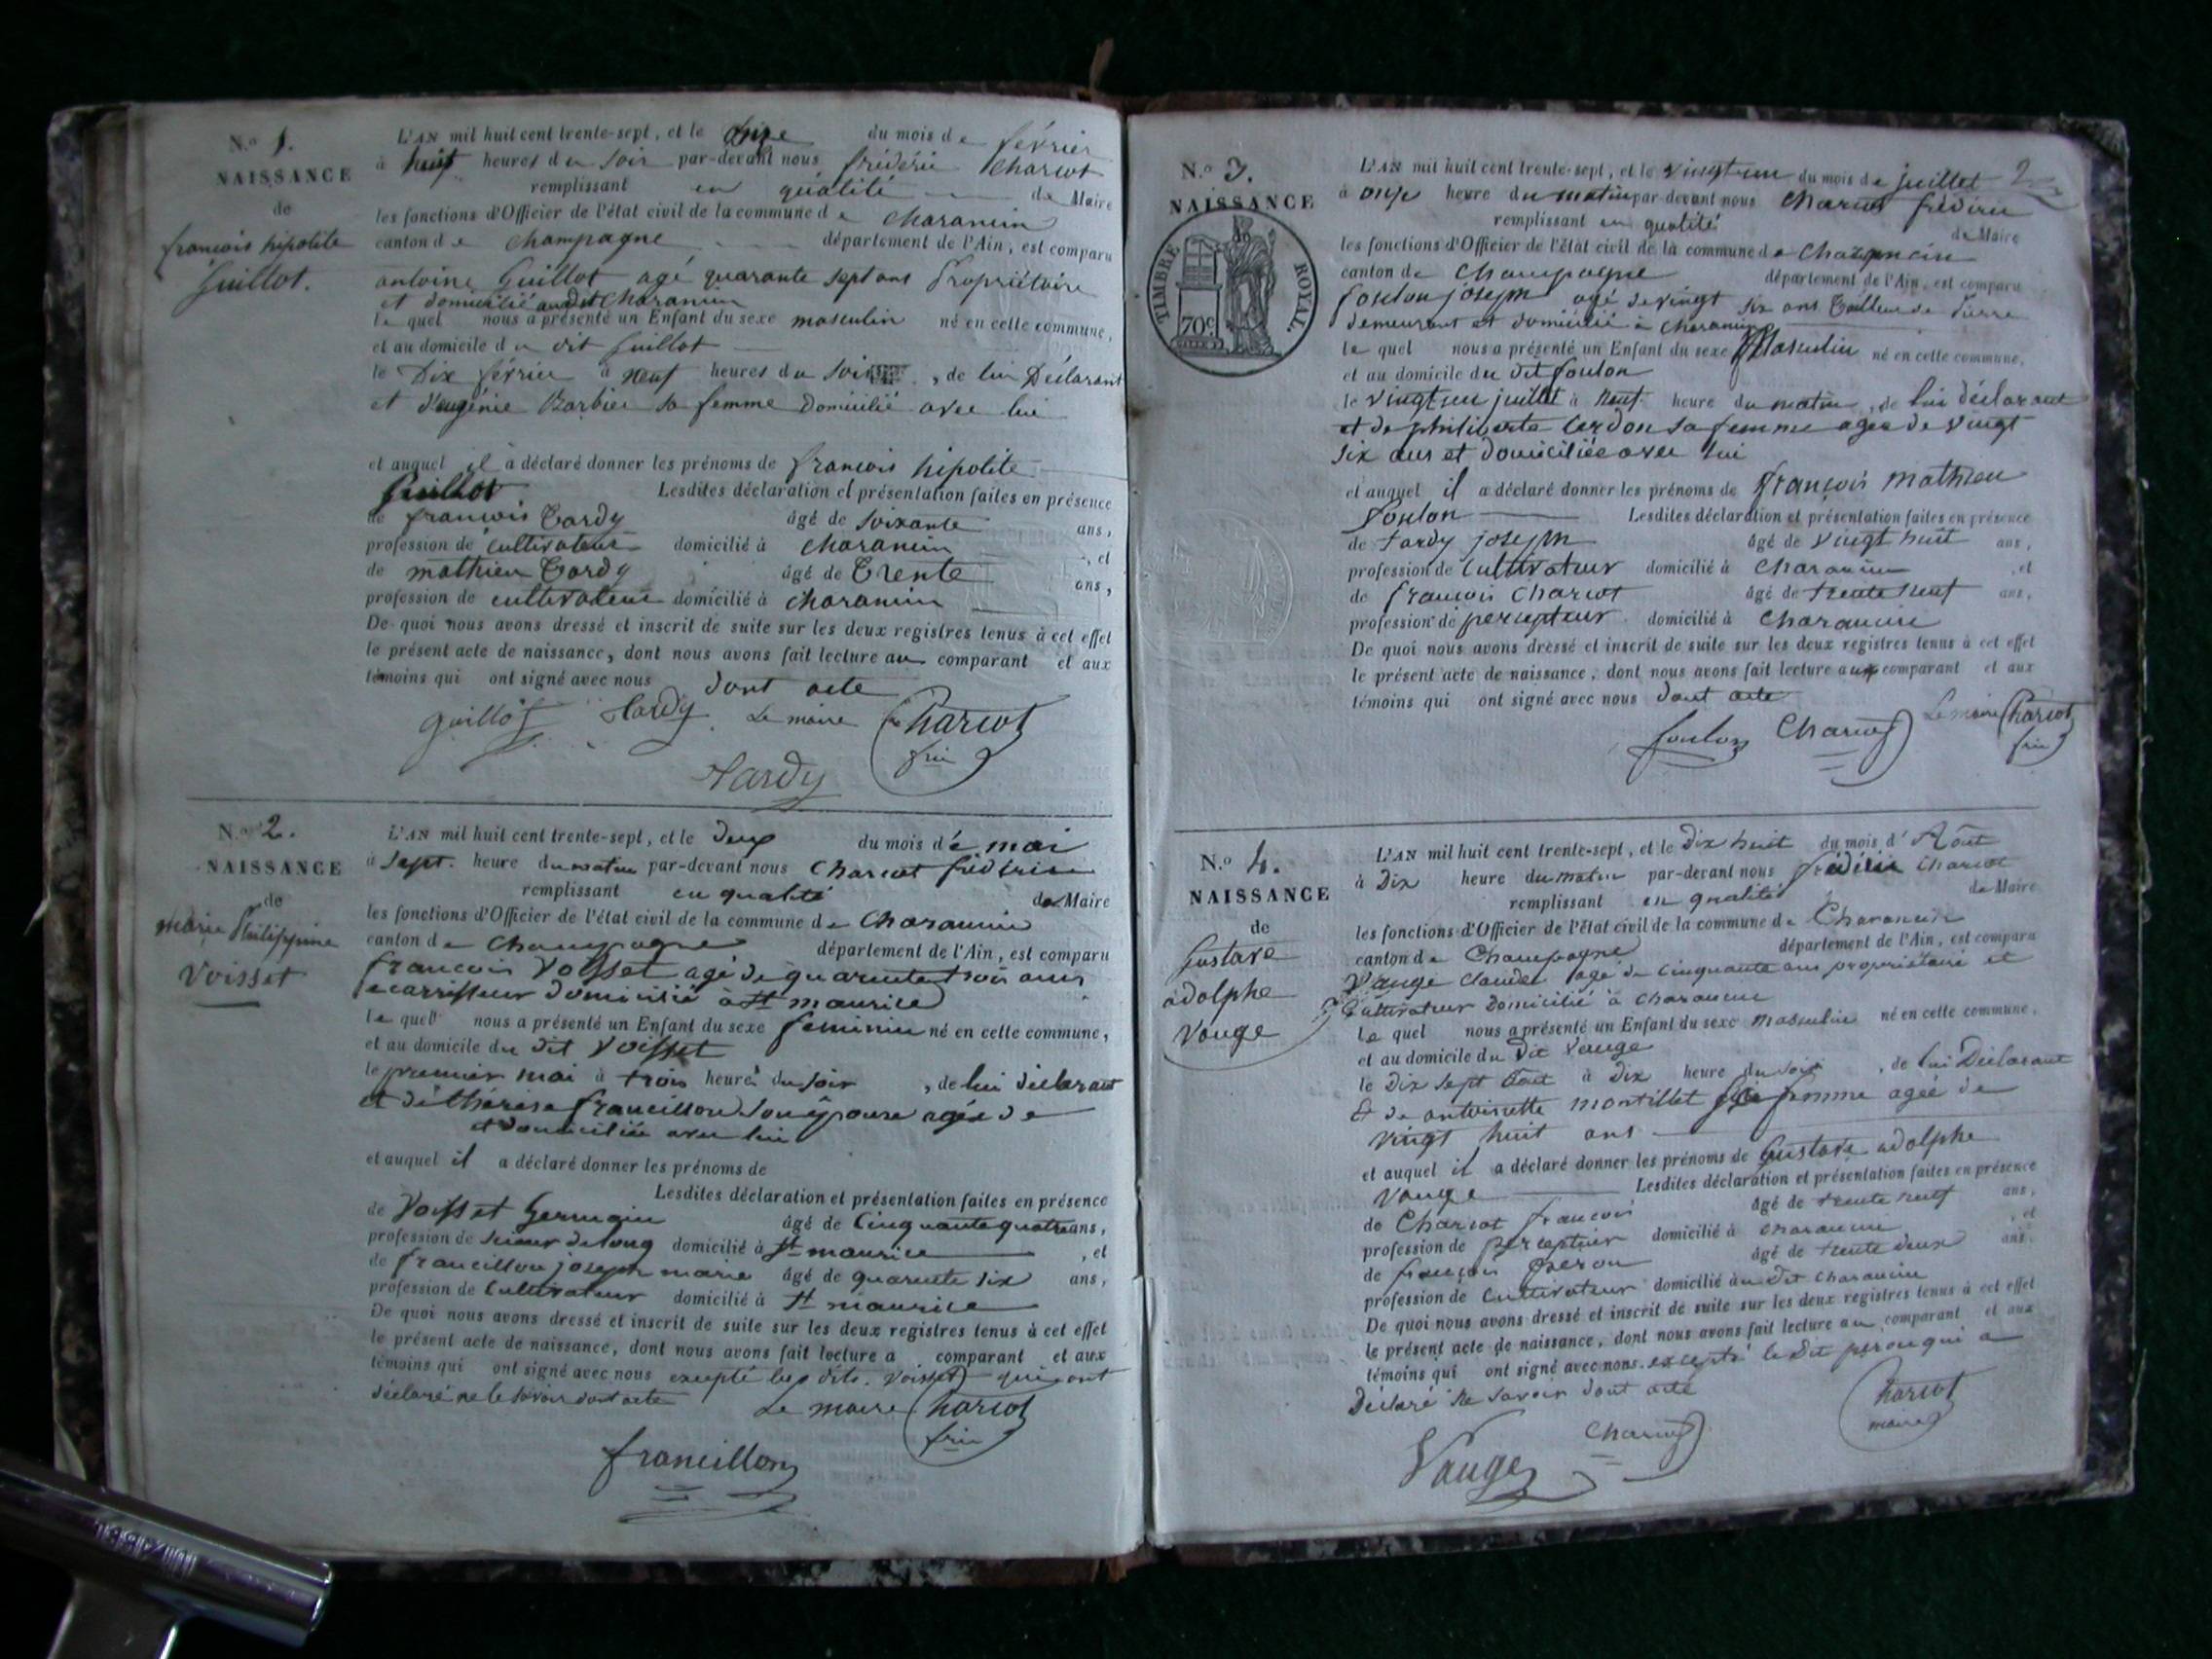 N.o 1.
NAISSANCE
de
françois hipolite
Guillot.
L'AN mil huit cent trente-sept, et le onze du mois de février
à huit heures du soir par-devant nous frédéric Charcot
remplissant en qualité de Maire
les fonctions d'Officier de l'état civil de la commune de Charancin
canton de Champagne département de l'Ain, est comparu
antoine Guillot agé quarante sept ans Propriétaire
et domicilié audit Charancin
le quel nous a présenté un Enfant du sexe masculin né en cette commune,
et au domicile du dit Guillot
le Dix février à neuf heures du soir, de lui Déclarant
et d'eugénie Barbier sa femme Domicilié avec lui
et auquel il a déclaré donner les prénoms de françois hipolite
Guillot Lesdites déclaration et présentation faites en présence
de françois Tardy âgé de soixante ans,
profession de cultivateur domicilié à Charancin, et
de mathieu Tardy âgé de Trente ans,
profession de cultivateur domicilié à Charancin
De quoi nous avons dressé et inscrit de suite sur les deux registres tenus à cet effet
le présent acte de naissance, dont nous avons fait lecture au comparant et aux
témoins qui ont signé avec nous dont acte
Guillot Tardy Le maire Charcot
fric
Tardy
N.o 2.
NAISSANCE
de
marie Philippine
Voisset
L'AN mil huit cent trente-sept, et le deux du mois de mai
à sept heure du matin par-devant nous Charcot frédéric
remplissant en qualité de Maire
les fonctions d'Officier de l'état civil de la commune de Charancin
canton de Champagne département de l'Ain, est comparu
françois Voisset agé de quarente trois ans
ecarrisseur domicilié à St maurice
le quel nous a présenté un Enfant du sexe feminin né en cette commune,
et au domicile du dit Voisset
le premier mai à trois heures du soir, de lui déclarant
et de thérèse francillon son épouse agée de
et domiciliée avec lui
et auquel il a déclaré donner les prénoms de
Lesdites déclaration et présentation faites en présence
de Voisset Germain âgé de cinquante quatre ans,
profession de scieur de long domicilié à St maurice, et
de francillon joseph marie âgé de quarente six ans,
profession de Cultivateur domicilié à St maurice
De quoi nous avons dressé et inscrit de suite sur les deux registres tenus à cet effet
le présent acte de naissance, dont nous avons fait lecture a comparant et aux
témoins qui ont signé avec nous excepté les dits Voisset qui ont
déclaré ne le savoir dont acte Le maire Charcot
fric
francillon
2
N.o 3.
NAISSANCE
TIMBRE ROYAL.
70c
L'AN mil huit cent trente-sept, et le vingt un du mois de juillet
à onze heure du matin par-devant nous Charcot frédéric
remplissant en qualité de Maire
les fonctions d'Officier de l'état civil de la commune de Charancin
canton de Champagne département de l'Ain, est comparu
foulon joseph agé de vingt six ans Tailleur de Pierre
demeurant et domicilié à Charancin
le quel nous a présenté un Enfant du sexe Masculin né en cette commune,
et au domicile du dit foulon
le vingt un juillet à neuf heure du matin, de lui déclarant
et de philiberte Cerdon sa femme agée de vingt
six ans et domiciliée avec lui
et auquel il a déclaré donner les prénoms de françois mathieu
foulon Lesdites déclaration et présentation faites en présence
de Tardy joseph âgé de vingt huit ans,
profession de Cultivateur domicilié à Charancin, et
de françois Charcot âgé de trente neuf ans,
profession de percepteur domicilié à Charancin
De quoi nous avons dressé et inscrit de suite sur les deux registres tenus à cet effet
le présent acte de naissance, dont nous avons fait lecture aux comparant et aux
témoins qui ont signé avec nous dont acte
foulon Charcot Le maire Charcot
fric
N.o 4.
NAISSANCE
de
Gustave
adolphe
Vauge
L'AN mil huit cent trente-sept, et le Dix huit du mois d' Août
à Dix heure du matin par-devant nous frédéric Charcot
remplissant en qualité de Maire
les fonctions d'Officier de l'état civil de la commune de Charancin
canton de Champagne département de l'Ain, est comparu
Vauge Claude agé de cinquante ans propriétaire et
Cultivateur domicilié à Charancin
le quel nous a présenté un Enfant du sexe masculin né en cette commune,
et au domicile du Dit Vauge
le Dix sept Août à Dix heure du soir, de lui Déclarant
& de antoinette montillet sa femme agée de
vingt huit ans
et auquel il a déclaré donner les prénoms de Gustave adolphe
Vauge Lesdites déclaration et présentation faites en présence
de Charcot françois âgé de trente neuf ans,
profession de percepteur domicilié à Charancin, et
de françois peron âgé de trente deux ans,
profession de Cultivateur domicilié au dit Charancin
De quoi nous avons dressé et inscrit de suite sur les deux registres tenus à cet effet
le présent acte de naissance, dont nous avons fait lecture au comparant et aux
témoins qui ont signé avec nous excepté le dit peron qui a
Déclaré ne savoir dont acte
Vauge Charcot Charcot
maire